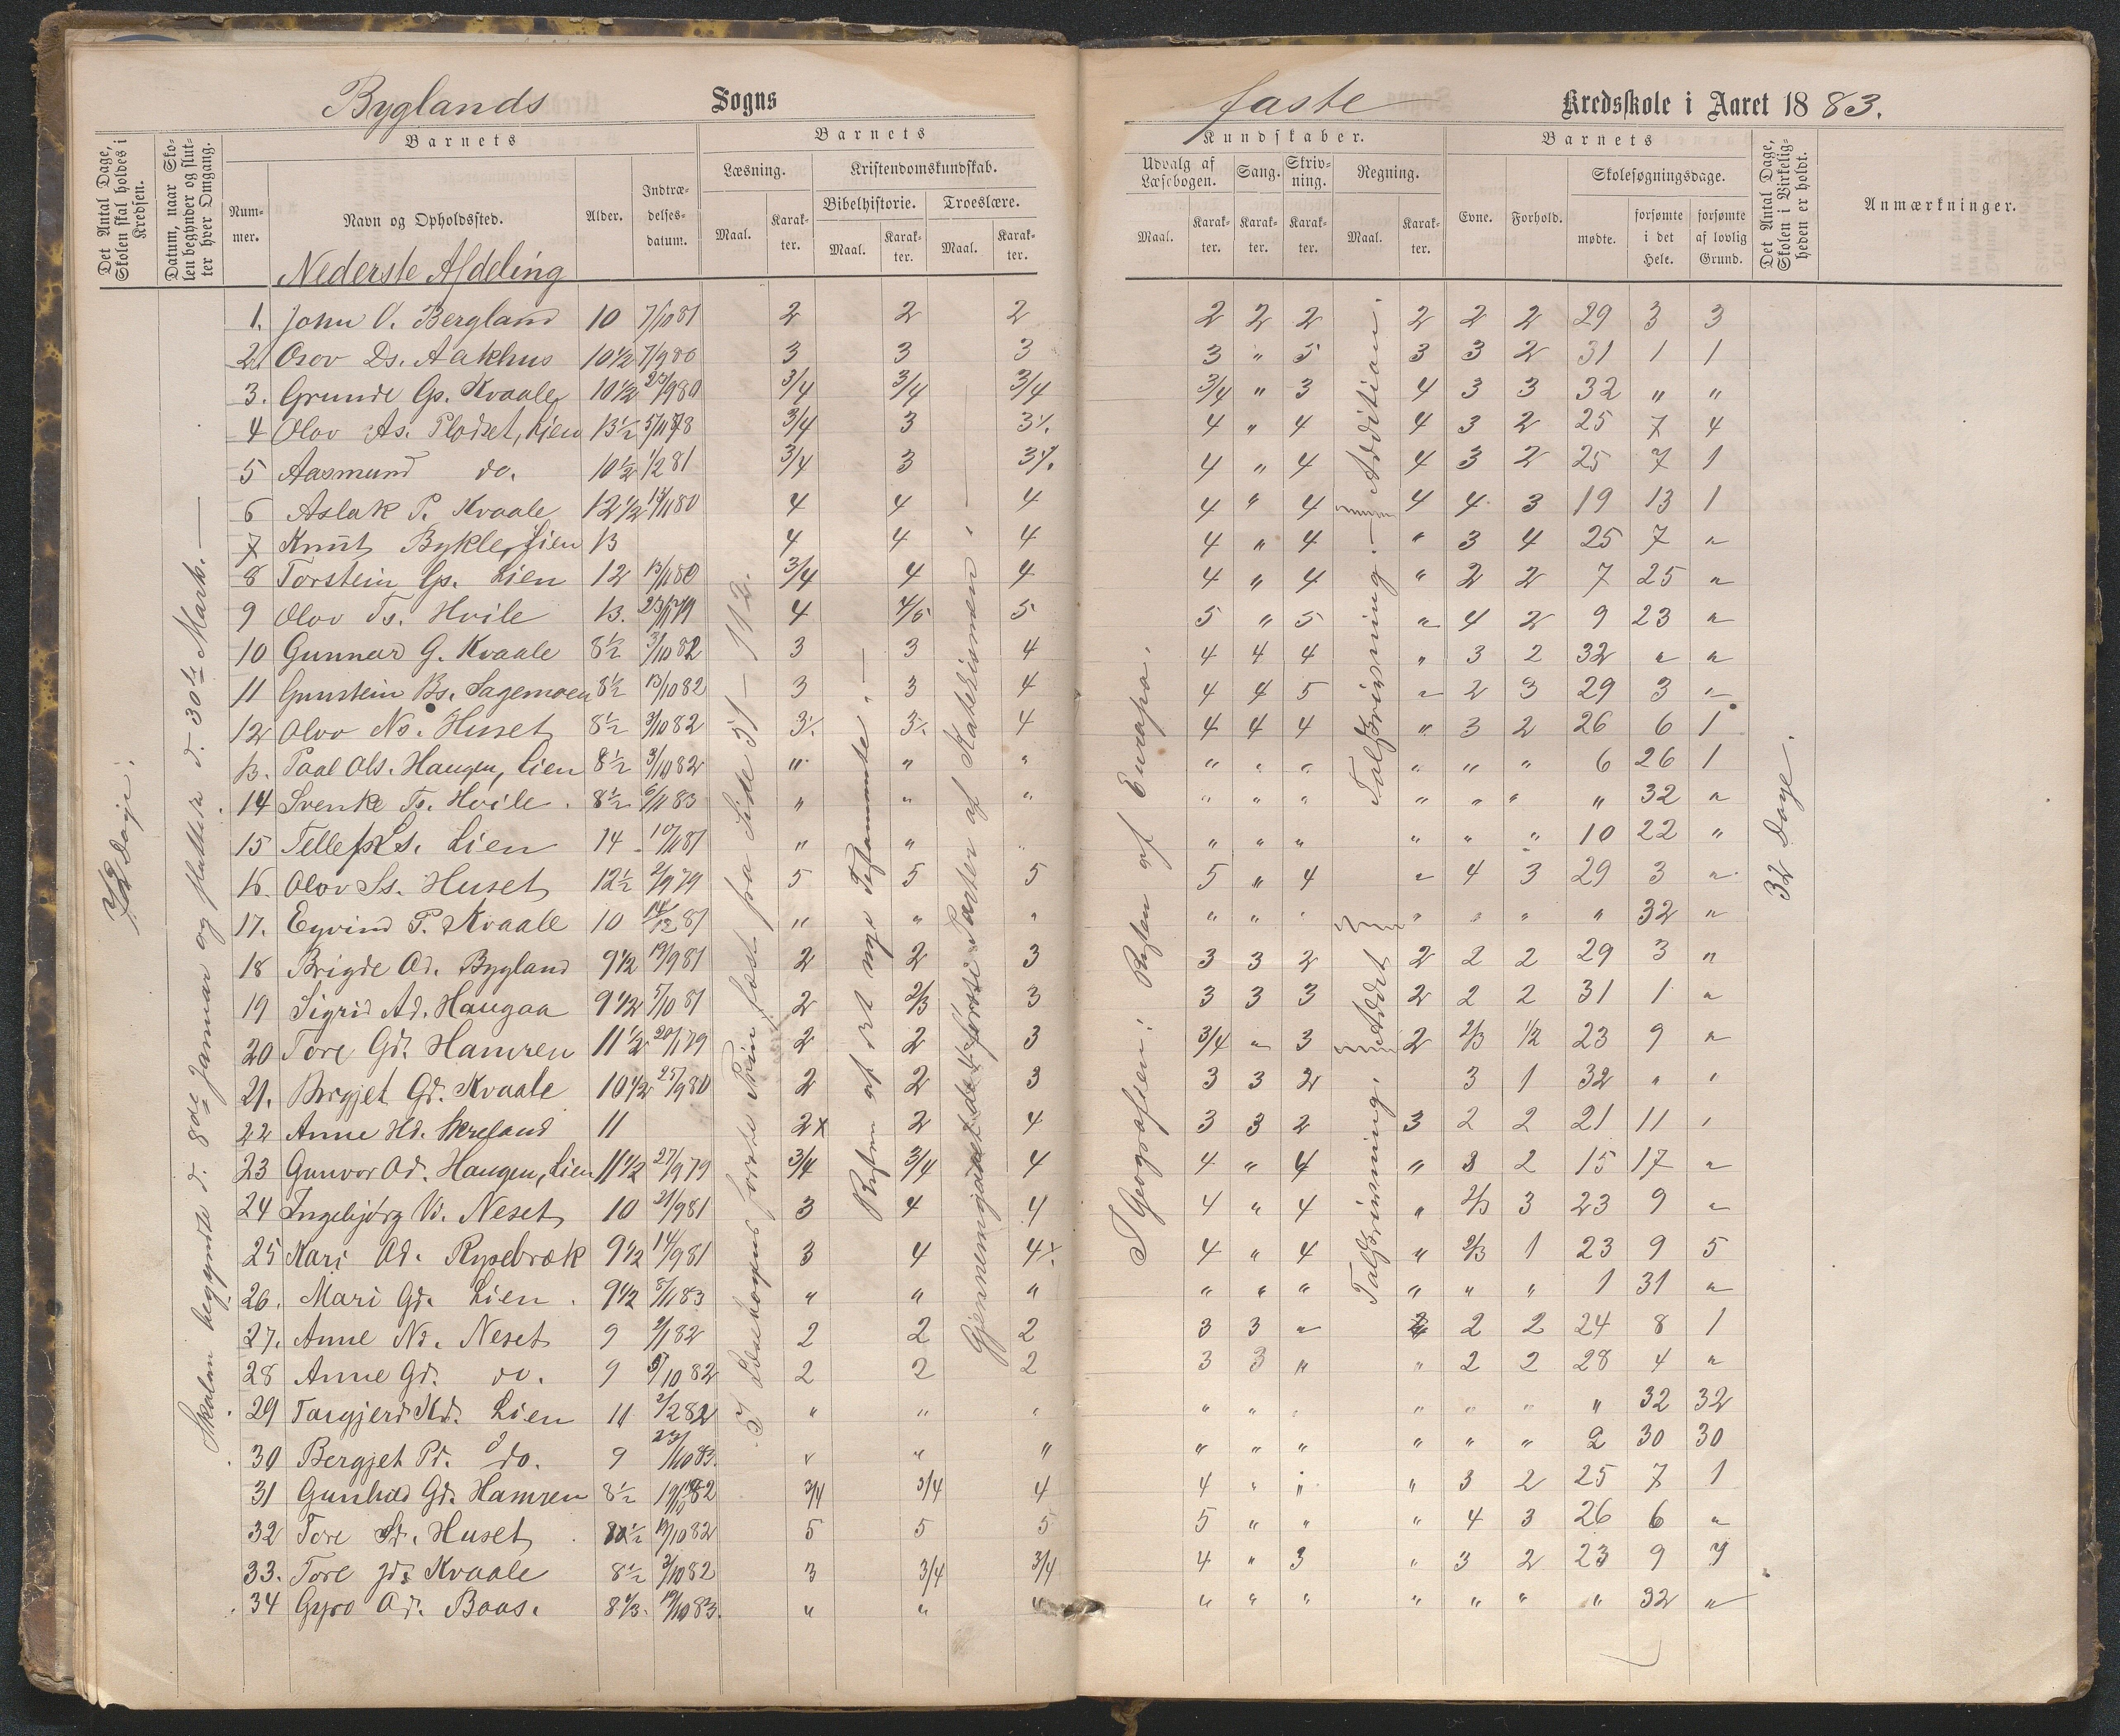 Byglands Sogns
faste Kredsskole i Aaret 1883.
Det Antal Dage, Skolen skal holdes i Kredsen.
Datum, naar Skolen begynder og slutter hver Omgang.
Barnets
Nummer.
Navn og Opholdssted.
Alder.
Indtrædelsesdatum.
Barnets
Læsning.
Maal.
Karakter.
Kristendomskundskab.
Bibelhistorie.
Maal.
Karakter.
Troeslære.
Maal.
Karakter.
Kundskaber.
Udvalg af Læsebogen.
Maal.
Karakter.
Sang.
Karakter.
Skrivning.
Karakter.
Regning.
Maal.
Karakter.
Barnets
Evne.
Forhold.
Skolesøgningsdage.
mødte.
forsømte i det Hele.
forsømte af lovlig Grund.
Det Antal Dage, Skolen i Virkeligheden er holdt.
Anmærkninger.
Nederste Afdeling
1. John O. Bergland 10 7/10 81 2 2 2 2 2 2 2 2 2 29 3 3
2. Osov Ds. Aakhus 10 1/2 7/9 80 3 3 3 3 " 5 3 3 2 31 1 1
3. Grunde Gs. Kvaale 10 1/2 25/9 80 3/4 3/4 3/4 3/4 " 3 4 3 3 32 " "
4 Olov As. Plodset, Lien 13 1/2 5/11 78 3/4 3 3 4 " 4 4 3 2 25 7 4
5 Aasmund do. 10 1/2 1/2 81 3/4 3 3 4 " 4 4 3 2 25 7 1
6 Aslak P. Kvaale 12 1/2 13/11 80 4 4 4 4 " 4 4 4 3 19 13 1
7 Knut Bykle, Lien 13 4 4 4 4 " 4 " 3 4 25 7 "
8 Torstein Gs. Lien 12 13/11 80 3/4 4 4 4 " 4 " 2 2 7 25 "
9 Olov Ts. Hvile 13. 4 4/5 5 5 " 5 " 4 2 9 23 "
10 Gunnar G. Kvaale 8 1/2 3/10 82 3 3 4 4 4 4 " 3 2 32 " "
11 Gunstein Bs. Sagemoen 8 1/2 13/10 82 3 3 4 4 4 5 " 2 3 29 3 "
12 Olov Ns. Huset 8 1/2 3/10 82 3 3 4 4 4 4 " 3 2 26 6 1
13. Paal Ols. Haugen, Lien 8 1/2 3/10 82 " " " " " " " " " 6 26 1
14 Svenke Ts. Hvile 8 1/2 6/11 83 " " " " " " " " " " 32 "
15 Tellef Ls. Lien 14 10/11 81 " " " " " " " " " 10 22 "
16 Olov Ss. Huset 12 1/2 2/9 79 5 5 5 5 " 4 " 4 3 29 3 "
17. Eyvind P. Kvaale 10 14/12 81 " " " " " " " " " " 32 "
18 Brigde Od. Bygland 9 1/2 19/9 81 2 2 3 3 3 2 2 2 2 29 3 "
19 Sigrid Ad. Haugaa 9 1/2 5/10 81 2 2/3 3 3 3 3 2 2 2 31 1 "
20 Tore Gd. Hamren 11 1/2 20/1 79 2 2 3 3/4 " 3 2 2/3 1/2 23 9 "
21. Borgjet Gd. Kvaale 10 1/2 25/9 80 2 2 3 3 3 2 3 1 32 " "
22 Anne Hd. Skreland 11 2x 2 4 3 3 2 3 2 2 21 11 "
23 Gunvor Od. Haugen, Lien 11 1/2 27/9 79 3/4 3/4 4 4 " 4 " 3 2 15 17 "
24 Ingebjørg Vd. Neset 10 21/9 81 3 4 4 4 " 4 " 2/3 3 23 9 "
25 Kari Od. Rysebræk 9 1/2 14/9 81 3 4 4 4 " 4 " 2/3 1 23 9 5
26. Mari Gd. Lien 9 1/2 8/11 83 " " " " " " " " " 1 31 "
27. Anne Nd. Neset 9 2/1 82 2 2 2 3 3 " 2 2 24 8 1
28 Anne Gd. do. 9 5/10 82 2 2 2 3 3 " " 2 2 28 4 "
29 Targjerd Kd. Lien 11 2/2 82 " " " " " " " " " " 32 32
30 Bergjet Pd. do. 9 23/10 83. " " " " " " " " " 2 30 30
31 Gunhild Gd. Hamren 8 1/2 3/4 3/4 4 4 " " " 3 2 25 7 1
32 Tore Sd. Huset 8 1/2 19/10 82 5 5 5 5 " " " 4 3 26 6 "
33. Tore Jd. Kvaale 8 1/2 3/10 82 3 3/4 3/4 4 " 3 " 3 2 23 9 7
34 Gyro Od. Baas. 8 1/3. 19/10 83. " " " " " " " " " " 32 "
Dage.
Skolen begyndte d. 8de Januar og sluttede d. 30te Marts.
I Læsebogens første Trin læst fra Side 51 – 112.
Resten af det nye Testamente.
Gjennemgaaet de første Parter af Katekismen.
I Geografien: Resten af Europa.
Talskrivning. — Addition.
Talskrivning. Addit
32 Dage.